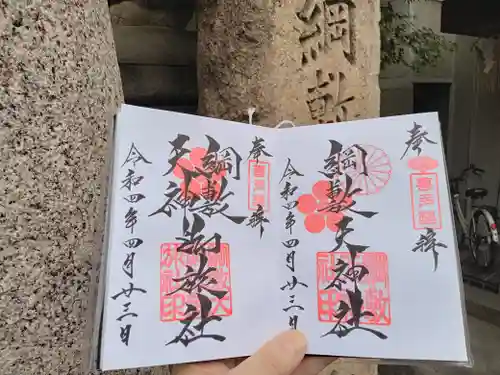 綱敷
奉拜
綱敷天神社
令和四年四月廿三日
奉拜
綱敷
天神御旅社
令和四年四月廿三日